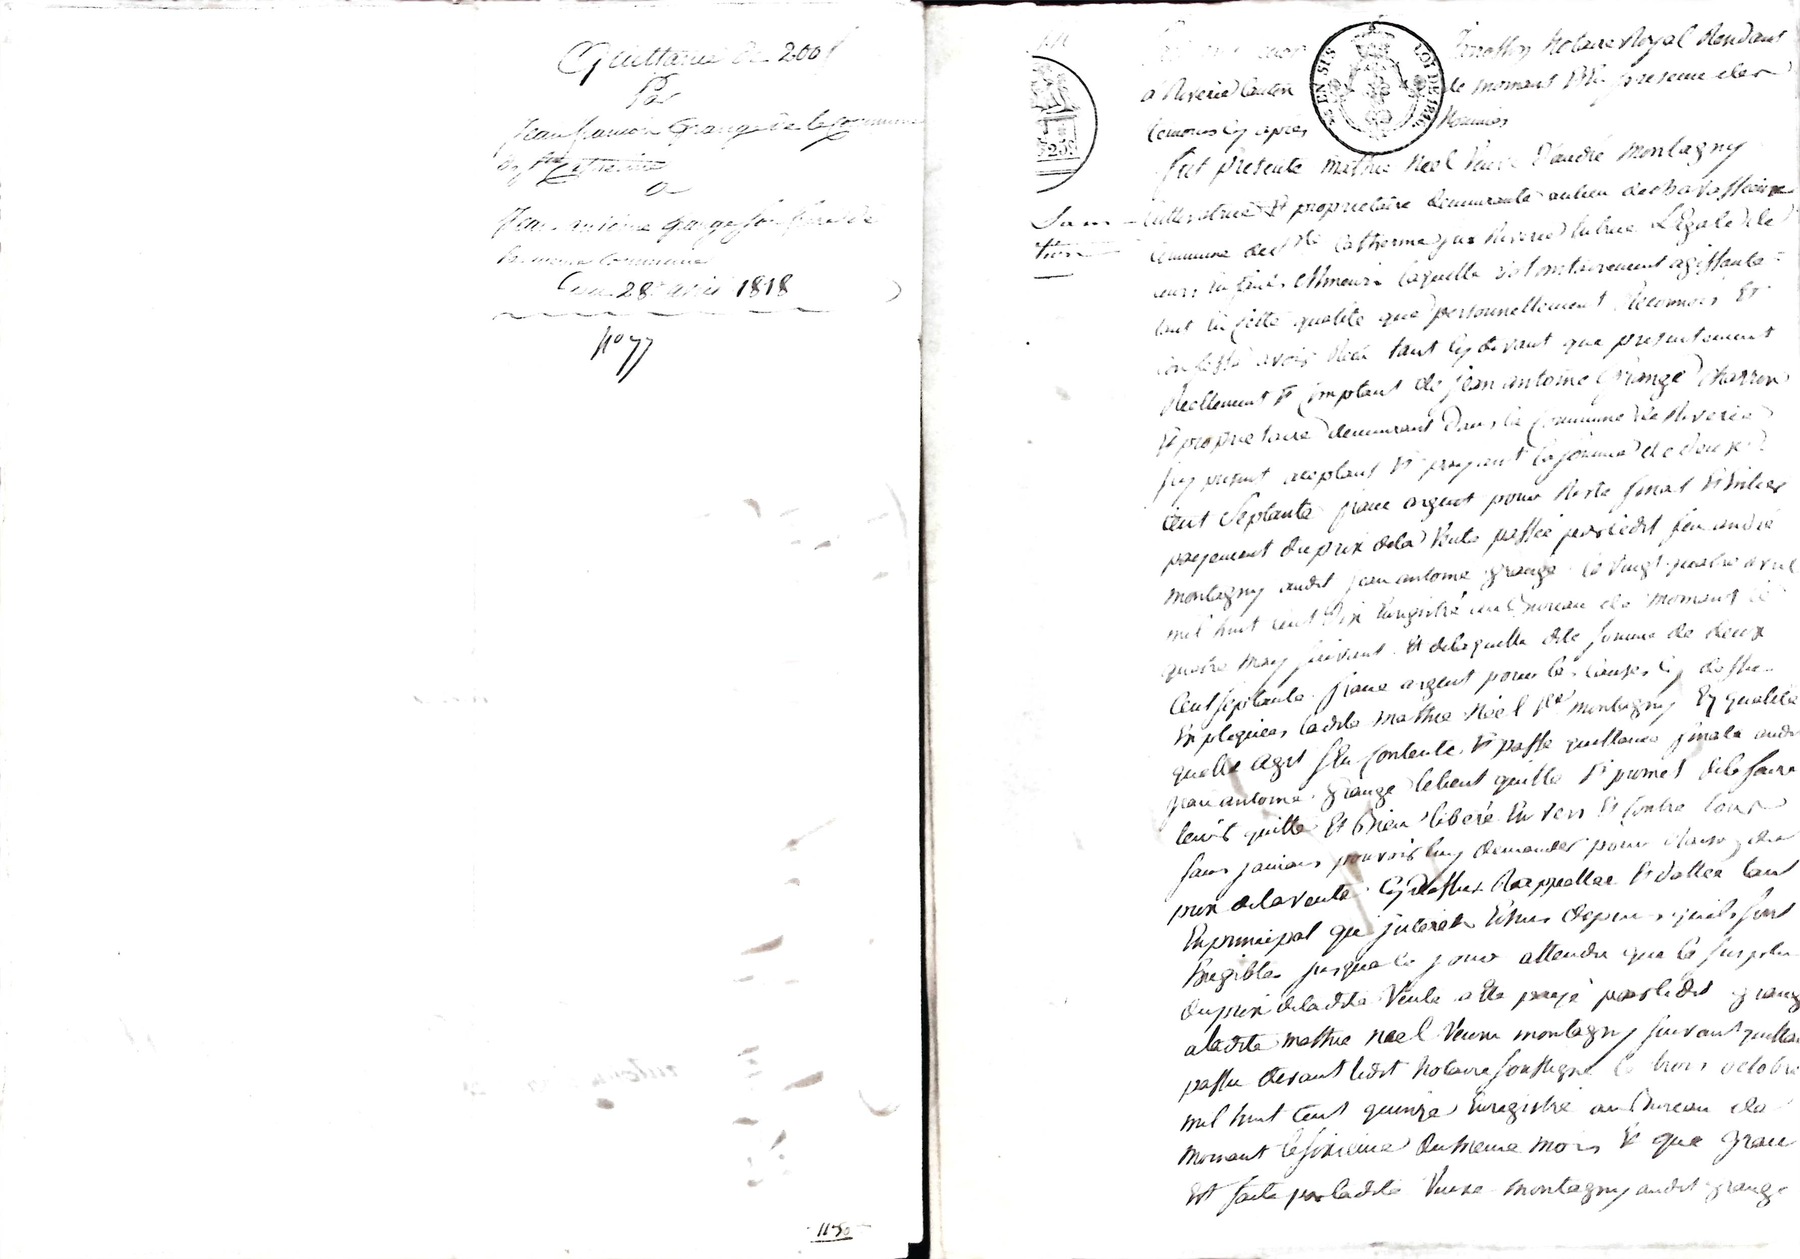 Quittance de 200 f
Par
Jean francois Grange de la commune
de Ste Catherine
a
Jean antoine grange son frere de
la meme commune
Du 28 avril 1818
No 77
1150
EN SUS
LOI DE 1816
25
notaire Royal Residant
a Riverie canton de mornant presence des
temoins cy apres nommés
fut presente mathie Noel Veuve D'andré Montagny
cultivatrice Et proprietaire demeurante au lieu de
commune de Ste Catherine sur Riverie tutrice Légale de
leurs enfants mineurs laquelle volontairement agissante
tant en cette qualité que personnellement Reconnoit Et
confesse avoir Recu tant cy devant que presentement
Reellement Et Comptant de jean antoine Grange charron
Et proprietaire demeurant dans la Commune de Riverie
ici present acceptant Et payant la somme de deux
cent Septante franc argent pour Reste final Et Entier
payement du prix de la Vente passée par ledit feu andré
montagny audit jean antoine grange le vingt quatre avril
mil huit cent dix Enregistré au Bureau de mornant le
quatre may suivant Et de laquelle dite somme de deux
Cent septante franc argent pour les causes cy dessus
Expliquées ladite mathie Noel Ve montagny En qualité
quelle agit s'en contente Et passe quittance finale audit
jean antoine grange le tient quitte Et promet de le faire
tenir quitte Et bien liberé Envers Et Contre tous
sans jamais pouvoir luy demander pour Raison du
prix de la vente cy dessus Rappellée Et dattée tant
En principal que jnterets Echus depuis quils sont
Exigibles jusqua ce jour attendu que le surplus
du prix de ladite Vente a Eté payé par ledit grange
a ladite mathie Noel Veuve montagny suivant quittance
passée devant ledit Notaire soussigné le trois octobre
mil huit cent quinze Enregistré au Bureau de
mornant le sixieme du meme mois Et que
Est faite par ladite Veuve montagny audit grange